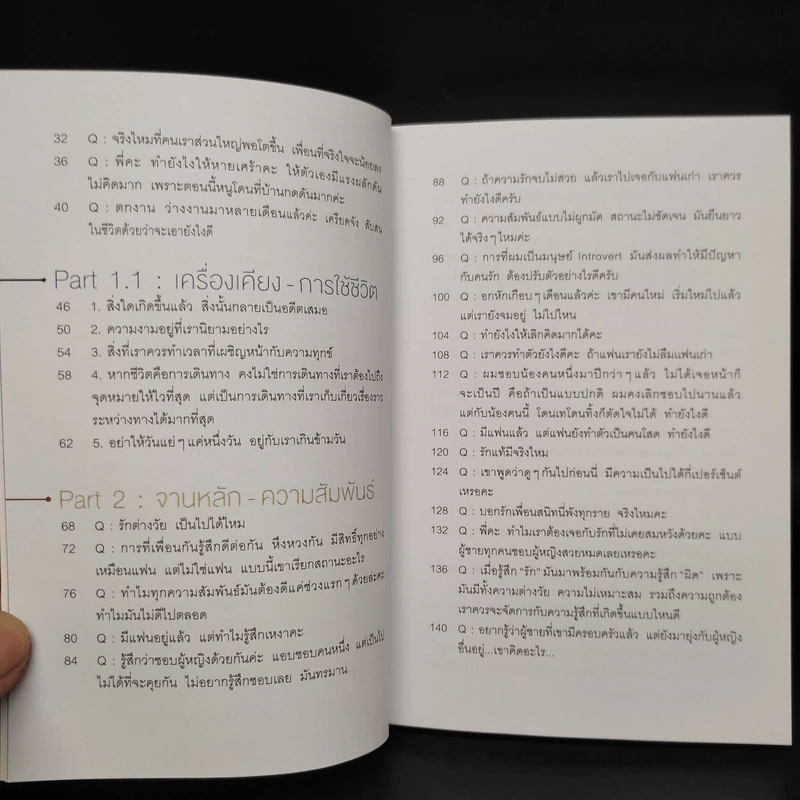 32 Q : จริงไหมที่คนเราส่วนใหญ่พอโตขึ้น เพื่อนที่จริงใจจะน้อยลง
36 Q : พี่คะ ทำยังไงให้หายเศร้าคะ ให้ตัวเองมีแรงผลักดัน
ไม่คิดมาก เพราะตอนนี้หนูโดนที่บ้านกดดันมากค่ะ
40 Q : ตกงาน ว่างงานมาหลายเดือนแล้วค่ะ เครียดจัง สับสน
ในชีวิตด้วยว่าจะเอายังไงดี
Part 1.1 : เครื่องเคียง - การใช้ชีวิต
46 1. สิ่งใดเกิดขึ้นแล้ว สิ่งนั้นกลายเป็นอดีตเสมอ
50 2. ความงามอยู่ที่เรานิยามอย่างไร
54 3. สิ่งที่เราควรทำเวลาที่เผชิญหน้ากับความทุกข์
58 4. หากชีวิตคือการเดินทาง คงไม่ใช่การเดินทางที่เราต้องไปถึง
จุดหมายให้ไวที่สุด แต่เป็นการเดินทางที่เราเก็บเกี่ยวเรื่องราว
ระหว่างทางได้มากที่สุด
62 5. อย่าให้วันแย่ๆ แค่หนึ่งวัน อยู่กับเราเกินข้ามวัน
Part 2 : จานหลัก - ความสัมพันธ์
68 Q : รักต่างวัย เป็นไปได้ไหม
72 Q : การที่เพื่อนกันรู้สึกดีต่อกัน หึงหวงกัน มีสิทธิ์ทุกอย่าง
เหมือนแฟน แต่ไม่ใช่แฟน แบบนี้เขาเรียกสถานะอะไร
76 Q : ทำไมทุกความสัมพันธ์มันต้องดีแค่ช่วงแรกๆ ด้วยล่ะคะ
ทำไมมันไม่ดีไปตลอด
80 Q : มีแฟนอยู่แล้ว แต่ทำไมรู้สึกเหงาคะ
84 Q : รู้สึกว่าชอบผู้หญิงด้วยกันค่ะ แอบชอบคนหนึ่ง แต่เป็นไป
ไม่ได้ที่จะคุยกัน ไม่อยากรู้สึกชอบเลย มันทรมาน
88 Q : ถ้าความรักจบไม่สวย แล้วเราไปเจอกับแฟนเก่า เราควร
ทำยังไงดีครับ
92 Q : ความสัมพันธ์แบบไม่ผูกมัด สถานะไม่ชัดเจน มันยืนยาว
ได้จริงๆ ไหมคะ
96 Q : การที่ผมเป็นมนุษย์ Introvert มันส่งผลทำให้มีปัญหา
กับคนรัก ต้องปรับตัวอย่างไรดีครับ
100 Q : อกหักเกือบๆ เดือนแล้วค่ะ เขามีคนใหม่ เริ่มใหม่ไปแล้ว
แต่เรายังจมอยู่ ไม่ไปไหน
104 Q : ทำยังไงให้เลิกคิดมากได้คะ
108 Q : เราควรทำตัวยังไงดีคะ ถ้าแฟนเรายังไม่ลืมแฟนเก่า
112 Q : ผมชอบน้องคนหนึ่งมาปีกว่าๆ แล้ว ไม่ได้เจอหน้าก็
จะเป็นปี คือถ้าเป็นแบบปกติ ผมคงเลิกชอบไปนานแล้ว
แต่กับน้องคนนี้ โดนเทโดนทิ้งก็ตัดใจไม่ได้ ทำยังไงดี
116 Q : มีแฟนแล้ว แต่แฟนยังทำตัวเป็นคนโสด ทำยังไงดี
120 Q : รักแท้มีจริงไหม
124 Q : เขาพูดว่าดูๆ กันไปก่อนนี่ มีความเป็นไปได้กี่เปอร์เซ็นต์
เหรอคะ
128 Q : บอกรักเพื่อนสนิทนี่พังทุกราย จริงไหมคะ
132 Q : พี่คะ ทำไมเราต้องเจอกับรักที่ไม่เคยสมหวังด้วยคะ แบบ
ผู้ชายทุกคนชอบผู้หญิงสวยหมดเลยเหรอคะ
136 Q : เมื่อรู้สึก "รัก" มันมาพร้อมกันกับความรู้สึก "ผิด" เพราะ
มันมีทั้งความต่างวัย ความไม่เหมาะสม รวมถึงความถูกต้อง
เราควรจะจัดการกับความรู้สึกที่เกิดขึ้นแบบไหนดี
140 Q : อยากรู้ว่าผู้ชายที่เขามีครอบครัวแล้ว แต่ยังมายุ่งกับผู้หญิง
อื่นอยู่...เขาคิดอะไร...